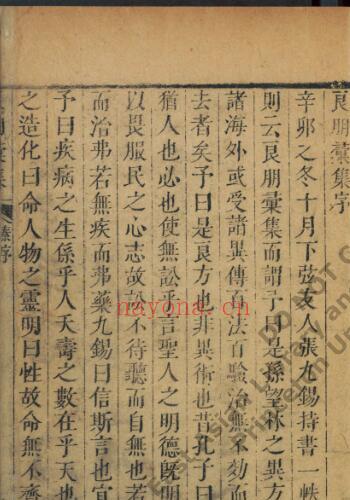 良朋彙集序
辛卯之冬十月下弦友人張九錫持書一帙
則云良朋彙集而謂予曰是孫望林之異方
諸海外或受諸異傳予法百驗治無不効而
去者矣予曰是良方也非異術也昔孔子曰
猶人也必也使無訟乎言聖人之明德既明
以畏服民之心志故訟不待聽而自無也若
而治弗若無疾而弗藥九錫曰信斯言也宜
予曰疾病之生係乎人夭壽之數在乎天也
之造化曰命人物之靈明曰性故命無不齊
朋彙集 序
nayona.cn
DO NOT C
East Asian Library and
Princeton Un